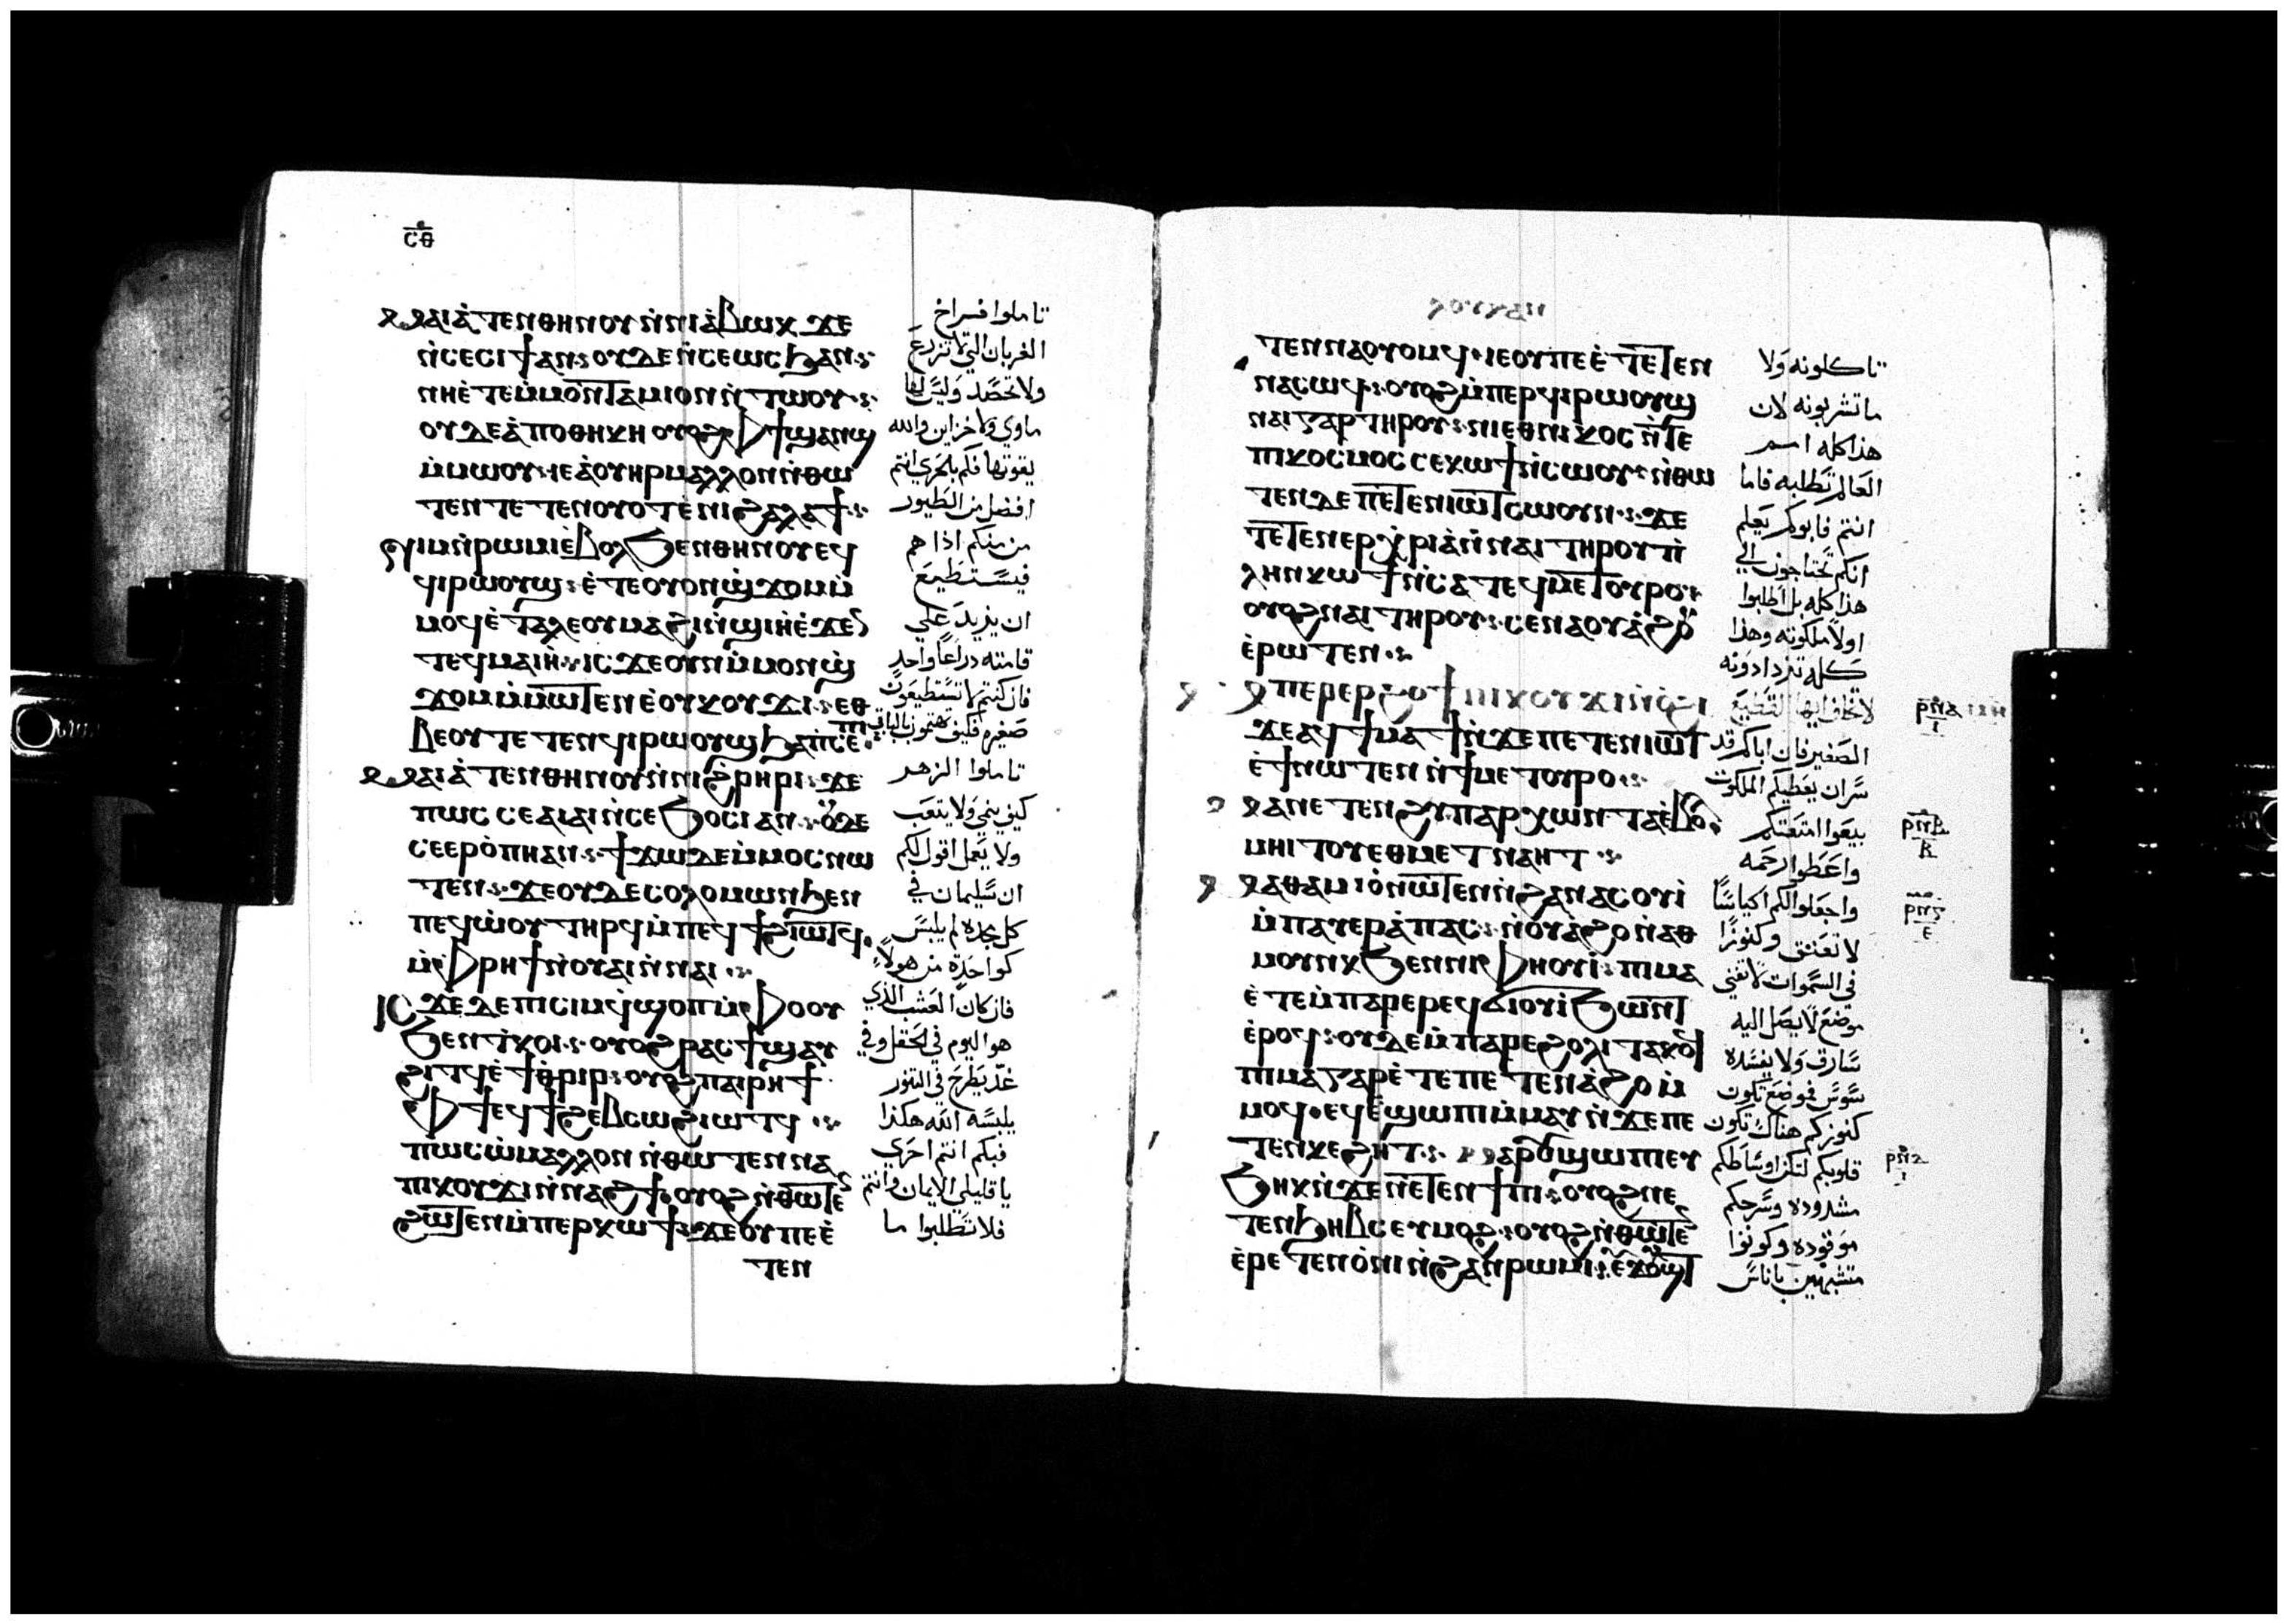 ⲥⲑ
ⲙⲁⲓⲁⲧⲉⲛⲑⲏⲛⲟⲩ ⲛ̀ⲛⲓⲁ̀ⲃⲱⲕ ϫⲉ
ⲛ̀ⲥⲉⲥⲓϯ ⲁⲛ: ⲟⲩⲇⲉ ⲛ̀ⲥⲉⲱⲥϧ ⲁⲛ:
ⲛⲏⲉ̀ⲧⲉ ⲙ̀ⲙⲟⲛⲧⲁⲙⲓⲟⲛ ⲛ̀ⲧⲱⲟⲩ:
ⲟⲩⲇⲉ ⲁ̀ⲡⲟⲑⲏⲕⲏ ⲟⲩⲟϩ ⲫϯ ϣⲁⲛϣ
ⲙ̀ⲙⲱⲟⲩ: ⲓⲉ ⲁ̀ⲟⲩⲏⲣ ⲙⲁⲗⲗⲟⲛ ⲛ̀ⲑⲱ
ⲧⲉⲛ ⲧⲉⲧⲉⲛⲟⲩⲟⲧ ⲉ̀ⲛⲓϩⲁⲗⲁϯ:
ⲛⲓⲙ ⲛ̀ⲣⲱⲙⲓ ⲉ̀ⲃⲟⲗ ϧⲉⲛ ⲑⲏⲛⲟⲩ ⲉϥ
ϥⲓⲣⲱⲟⲩϣ: ⲉ̀ⲧⲉ ⲟⲩⲟⲛϣϫⲟⲙ ⲙ̀
ⲙⲟϥ ⲉ̀ⲧⲁⲗⲉ ⲟⲩⲙⲁϩⲓ ⲛ̀ϣⲓⲏ ⲉ̀ϫⲉ
ⲧⲉϥⲙⲁⲓⲏ: ⲓⲥϫⲉ ⲟⲩⲛ ⲙ̀ⲙⲟⲛϣ
ϫⲟⲙ ⲙ̀ⲙⲱⲧⲉⲛ ⲉ̀ⲟⲩⲕⲟⲩϫⲓ: ⲉⲑ
ⲃⲉⲟⲩ ⲧⲉⲧⲉⲛϥⲓⲣⲱⲟⲩϣ ϧⲁ ⲡⲥⲉⲡⲓ
ⲙⲁⲓⲁⲧⲉⲛⲑⲏⲛⲟⲩ ⲛ̀ⲛⲓϩⲣⲏⲣⲓ: ϫⲉ
ⲡⲱⲥ ⲥⲉⲁⲓⲁⲓ ⲛ̀ⲥⲉϧⲟⲥⲓ ⲁⲛ: ⲟⲩⲇⲉ
ⲥⲉⲉⲣϩⲟⲡⲏ ⲁⲛ: ϯϫⲱ ⲇⲉ ⲙ̀ⲙⲟⲥ ⲛⲱ
ⲧⲉⲛ: ϫⲉ ⲟⲩⲇⲉ ⲥⲟⲗⲟⲙⲱⲛ ϧⲉⲛ
ⲡⲉϥⲱ̀ⲟⲩ ⲧⲏⲣϥ ⲙ̀ⲡⲉϥϯϩⲓⲱⲧϥ
ⲙ̀ⲫⲣⲏϯ ⲛ̀ⲟⲩⲁⲓ ⲛ̀ⲛⲁⲓ:
ⲓⲥϫⲉ ⲇⲉ ⲡⲓⲥⲓⲙ ϥϣⲟⲡ ⲙ̀ⲫⲟⲟⲩ
ϧⲉⲛ ⲧ̀ⲕⲟⲓ: ⲟⲩⲟϩ ⲣⲁⲥϯ ϣⲁⲩ
ϩⲓⲧϥ ⲉ̀ϯⲑⲣⲓⲣ: ⲟⲩⲟϩ ⲡⲁⲓⲣⲏϯ
ⲫϯ ⲉϥϯϩⲉⲃⲥⲱ ϩⲓⲱⲧϥ:
ⲡⲱⲥⲱ ⲙⲁⲗⲗⲟⲛ ⲛ̀ⲑⲱⲧⲉⲛ ⲛⲁ
ⲡⲓⲕⲟⲩϫⲓ ⲛ̀ⲛⲁϩϯ: ⲟⲩⲟϩ ⲛ̀ⲑⲱⲧⲉ
ϩⲱⲧⲉⲛ ⲙ̀ⲡⲉⲣⲕⲱϯ: ϫⲉ ⲟⲩ ⲡⲉ ⲉ̀
ⲧⲉⲛ
تاملوا فراخ
الغربان التي لا تزرع
ولا تحصد وليس لها
ماوي ولا خزاين والله
يقوتها فكم بلحري انتم
افضل من الطيور
من منكم اذا هم
فيستطيع
ان يزيد علي
قامته دراعا واحد
فان كنتم لا تستطيعون
صغيره فكيف تهتمون بالباقي
تاملوا الزهر
كيف ينمي ولا يتعب
ولا يعمل اقول لكم
ان سليمان في
كل مجده لم يلبس
كواحدة من هولاء
فان كان العشب الذي
هو اليوم في الحقل وفي
غد يطرح في التنور
يلبسه الله هكذا
فبكم انتم احري
يا قليلي الايمان وانتم
فلا تطلبوا ما
ⲗⲟⲩⲕⲁⲛ
ⲧⲉⲛⲛⲁⲟⲩⲟⲙϥ: ⲓⲉ ⲟⲩ ⲡⲉ ⲉ̀ⲧⲉⲧⲉⲛ
ⲛⲁⲥⲱϥ: ⲟⲩⲟϩ ⲙ̀ⲡⲉⲣϥⲓⲣⲱⲟⲩϣ
ⲛⲁⲓ ⲅⲁⲣ ⲧⲏⲣⲟⲩ: ⲛⲓⲉⲑⲛⲓⲕⲟⲥ ⲛ̀ⲧⲉ
ⲡⲓⲕⲟⲥⲙⲟⲥ ⲥⲉⲕⲱϯ ⲛ̀ⲥⲱⲟⲩ: ⲛ̀ⲑⲱ
ⲧⲉⲛ ⲇⲉ ⲡⲉⲧⲉⲛⲓⲱⲧ ⲥⲱⲟⲩⲛ: ϫⲉ
ⲧⲉⲧⲉⲛⲉⲣⲭⲣⲓⲁ ⲛ̀ⲛⲁⲓ ⲧⲏⲣⲟⲩ ⲡ̀
ⲗⲏⲛ ⲕⲱϯ ⲛ̀ⲥⲁ ⲧⲉϥⲙⲉⲧⲟⲩⲣⲟ:
ⲟⲩⲟϩ ⲛⲁⲓ ⲧⲏⲣⲟⲩ: ⲥⲉⲛⲁⲟⲩⲁϩⲟⲩ
ⲉ̀ⲣⲱⲧⲉⲛ:
ⲙⲡⲉⲣⲉⲣϩⲟϯ ⲡⲓⲕⲟⲩϫⲓ ⲛ̀ⲟϩⲓ
ϫⲉ ⲁϥϯⲙⲁϯ ⲛ̀ϫⲉ ⲡⲉⲧⲉⲛⲓⲱⲧ
ⲉ̀ϯ ⲛⲱⲧⲉⲛ ⲛ̀ϯⲙⲉⲧⲟⲩⲣⲟ:
ⲙⲁ ⲛⲉⲧⲉⲛϩⲩⲡⲁⲣⲭⲱⲛⲧⲁ ⲉ̀ⲃⲟⲗ
ⲙⲏⲓⲧⲟⲩ ⲉⲑⲙⲉⲧⲛⲁⲏⲧ:
ⲙⲁⲑⲁⲙⲓⲟ ⲛⲱⲧⲉⲛ ⲛ̀ϩⲁⲛⲁⲥⲟⲩⲓ̀
ⲙ̀ⲡⲁⲩⲉⲣⲁ̀ⲡⲁⲥ: ⲛ̀ⲟⲩⲁ̀ϩⲟ ⲛ̀ⲁⲑ
ⲙⲟⲩⲛⲕ ϧⲉⲛ ⲛⲓⲫⲏⲟⲩⲓ̀: ⲡⲓⲙⲁ
ⲉ̀ⲧⲉ ⲙ̀ⲡⲁⲣⲉ ⲣⲉϥϭⲓⲟⲩⲓ̀ ϧⲱⲛⲧ
ⲉ̀ⲣⲟϥ: ⲟⲩⲇⲉ ⲙ̀ⲡⲁⲣⲉ ϩⲟⲗⲓ ⲧⲁⲕⲟϥ
ⲡⲓⲙⲁ ⲅⲁⲣ ⲉ̀ⲧⲉ ⲡⲉⲧⲉⲛⲁ̀ϩⲟ ⲙ̀
ⲙⲟϥ: ⲉϥⲉ̀ϣⲱⲡⲓ ⲙ̀ⲙⲁⲩ ⲛ̀ϫⲉ ⲡⲉ
ⲧⲉⲛⲕⲉϩⲏⲧ: ⲙⲁⲣⲟⲩϣⲱⲡⲓ ⲉⲩ
ϧⲏⲕ ⲛ̀ϫⲉ ⲛⲉⲧⲉⲛϯⲡⲓ: ⲟⲩⲟϩ ⲛⲉ
ⲧⲉⲛϧⲏⲃⲥ ⲉⲩⲙⲟϩ: ⲟⲩⲟϩ ⲛ̀ⲑⲱⲧⲉ
ⲉ̀ⲣⲉⲧⲉⲛⲟ̀ⲛⲓ ⲛ̀ϩⲁⲛⲣⲱⲙⲓ: ⲉⲩϫⲟⲩϣⲧ
تاكلونه ولا
ما تشربونه لان
هذا كله اسم
العالم تطلبه فاما
انتم فابوكم يعلم
انكم تحتاجون الي
هذا كله بل اطلبوا
اولا ملكوته وهذا
كله تزدادونه
لا تخاف ايها القطيع
الصغير فان اباكم قد
سر ان يعطيكم الملكوت
بيعوا امتعتكم
واعطوا رحمه
واجعلوا لكم اكياسا
لا تعتق وكنوزا
في السموات لا تفني
موضع لا يصل اليه
سارق ولا يفسده
سوس فموضع تكون
كنوزكم هناك تكون
قلوبكم لتكن اوساطكم
مشدوده وسرجكم
موقوده وكونوا
متشبهين باناس